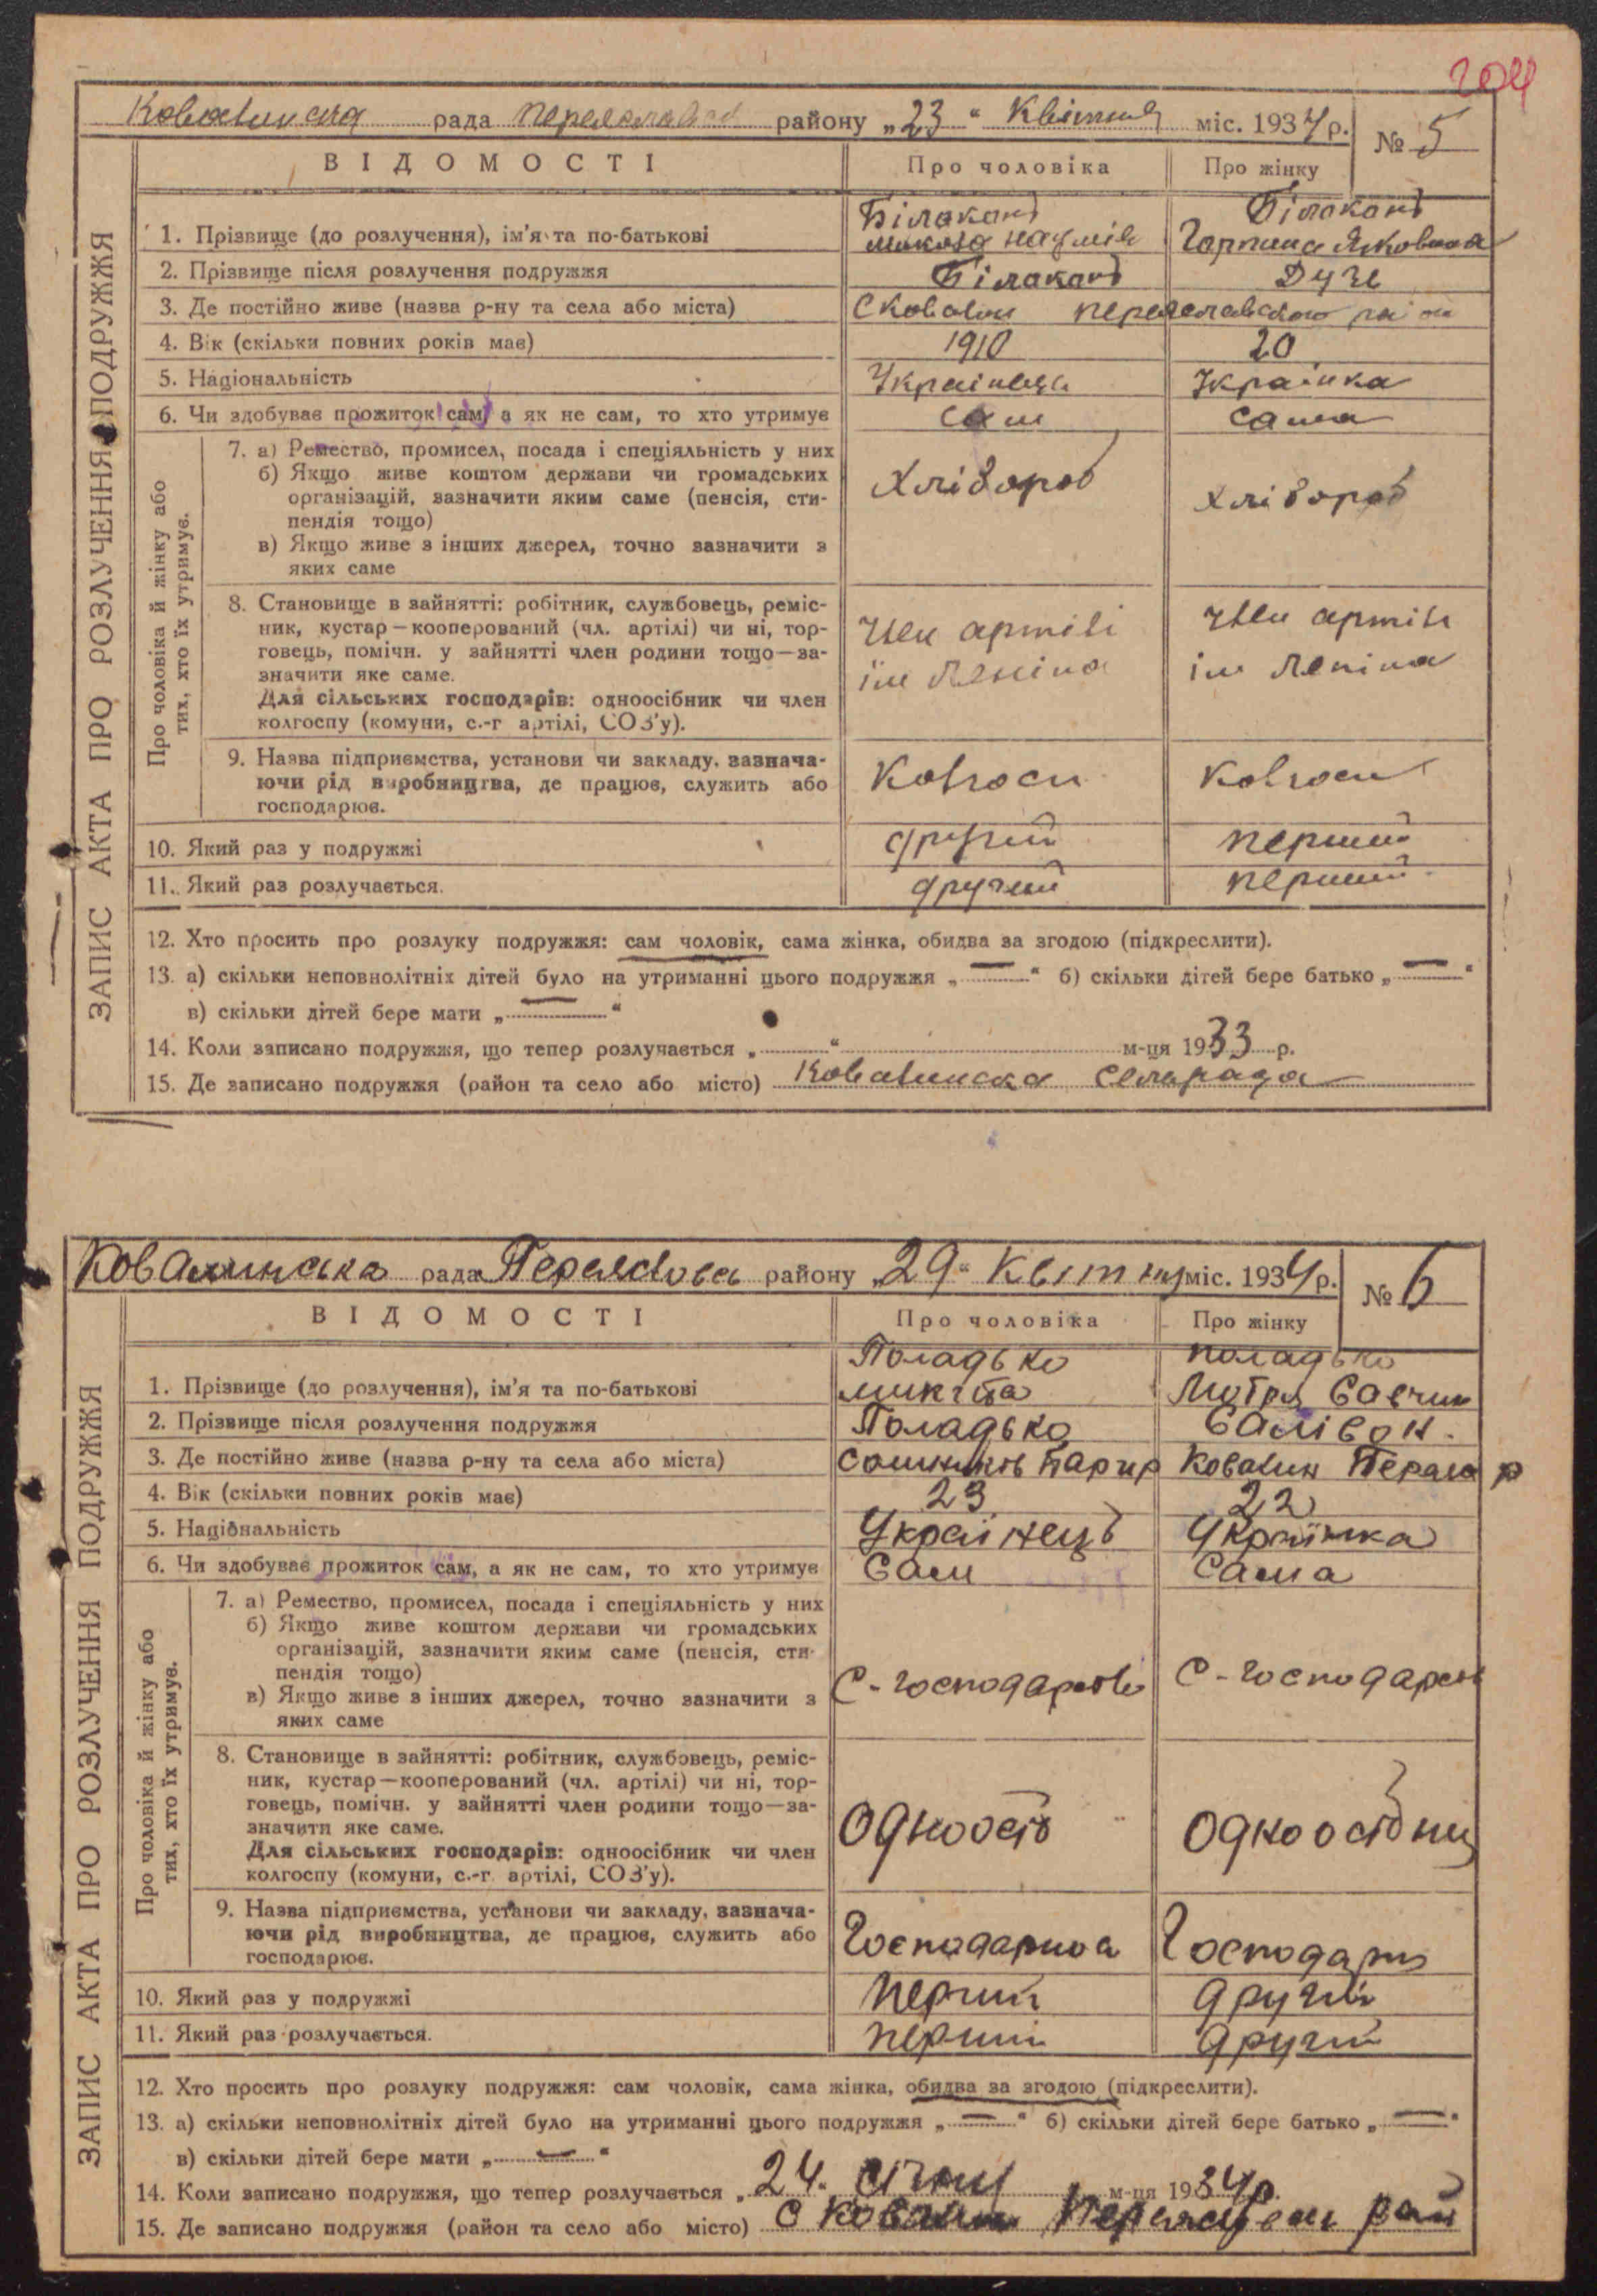 204
Ковалинска рада Переяславск району „23“ Квітня міс. 1934 р. № 5
ВІДОМОСТІ Про чоловіка Про жінку
ЗАПИС АКТА ПРО РОЗЛУЧЕННЯ ПОДРУЖЖЯ
Білоконь Білоконь
1. Прізвище (до розлучення), ім'я та по-батькові Микола Наумів Горпина Яковна
2. Прізвище після розлучення подружжя Білоконь
3. Де постійно живе (назва р-ну та села або міста) С Ковалин Переяславского район
4. Вік (скільки повних років має) 1910 20
5. Національність Українець Українка
6. Чи здобуває прожиток сам, а як не сам, то хто утримує сам сама
Про чоловіка й жінку або тих, хто їх утримує.
7. а) Ремество, промисел, посада і спеціяльність у них
б) Якщо живе коштом держави чи громадських Хлібороб Хлібороб
організацій, зазначити яким саме (пенсія, сти-
пендія тощо)
в) Якщо живе з інших джерел, точно зазначити з
яких саме
8. Становище в зайнятті: робітник, службовець, реміс-
ник, кустар—кооперований (чл. артілі) чи ні, тор- Член артілі Член артілі
говець, помічн. у зайнятті член родини тощо—за-
значити яке саме. ім Леніна ім Леніна
Для сільських господарів: одноосібник чи член
колгоспу (комуни, с.-г артілі, СОЗ'у).
9. Назва підприємства, установи чи закладу, зазнача-
ючи рід виробництва, де працює, служить або Колгосп Колгосп
господарює.
10. Який раз у подружжі другий перший
11. Який раз розлучається. другий перший
12. Хто просить про розлуку подружжя: сам чоловік, сама жінка, обидва за згодою (підкреслити).
13. а) скільки неповнолітніх дітей було на утриманні цього подружжя „—“ б) скільки дітей бере батько „—“
в) скільки дітей бере мати „—“
14. Коли записано подружжя, що тепер розлучається „ “ м-ця 1933 р.
15. Де записано подружжя (район та село або місто) Ковалинска селърада
Ковалинська рада Переяслові району „29“ Квітня міс. 1934 р. № 6
ВІДОМОСТІ Про чоловіка Про жінку
ЗАПИС АКТА ПРО РОЗЛУЧЕННЯ ПОДРУЖЖЯ
Поладько Поладько
1. Прізвище (до розлучення), ім'я та по-батькові Микита Мотря Савчин
2. Прізвище після розлучення подружжя Поладько Салівон.
3. Де постійно живе (назва р-ну та села або міста) Сошників Ковалин
4. Вік (скільки повних років має) 23 22
5. Національність Українець Українка
6. Чи здобуває прожиток сам, а як не сам, то хто утримує Сам Сама
Про чоловіка й жінку або тих, хто їх утримує.
7. а) Ремество, промисел, посада і спеціяльність у них
б) Якщо живе коштом держави чи громадських
організацій, зазначити яким саме (пенсія, сти-
пендія тощо) С-господарстві С-господарст
в) Якщо живе з інших джерел, точно зазначити з
яких саме
8. Становище в зайнятті: робітник, службовець, реміс-
ник, кустар—кооперований (чл. артілі) чи ні, тор-
говець, помічн. у зайнятті член родини тощо—за-
значити яке саме. Одноосіб Одноосібниц
Для сільських господарів: одноосібник чи член
колгоспу (комуни, с.-г. артілі, СОЗ'у).
9. Назва підприємства, установи чи закладу, зазнача-
ючи рід виробництва, де працює, служить або
господарює.
10. Який раз у подружжі перший другий
11. Який раз розлучається. перший другий
12. Хто просить про розлуку подружжя: сам чоловік, сама жінка, обидва за згодою (підкреслити).
13. а) скільки неповнолітніх дітей було на утриманні цього подружжя „—“ б) скільки дітей бере батько „—“
в) скільки дітей бере мати „—“
14. Коли записано подружжя, що тепер розлучається „24. січня м-ця 1934 р.
15. Де записано подружжя (район та село або місто) с Ковалин рай